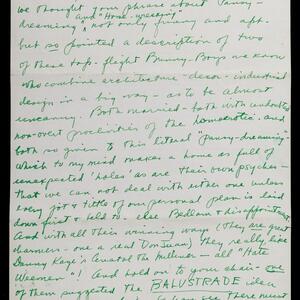 We thought your phrase about "Pansy-
and "Home-wrecking"
dreaming", not only funny and apt.
but so pointed a description of two
of these top-flight Brainy-Boys we know
who combine architecture - decor - industrial
design in a big way - as to be almost
uncanny. Both married - both with undoubted
non-overt proclivities of the homoerotic - and
both so given to this literal "pansy-dreaming"
which to my mind makes a home as full of
unexpected 'holes' as are their own psyches -
that we can not deal with either one unless
every jot & tittle of our personal plan is laid
down first & held to. else Bedlam & disappointment
And with all their winning ways (They are great
charmers - one a real Don Juan) they really like
Danny Kaye's Anatol the Milliner - all "Hate
Weemen"! And hold on to your chair - one
of them suggested the BALUSTRADE idea
there must